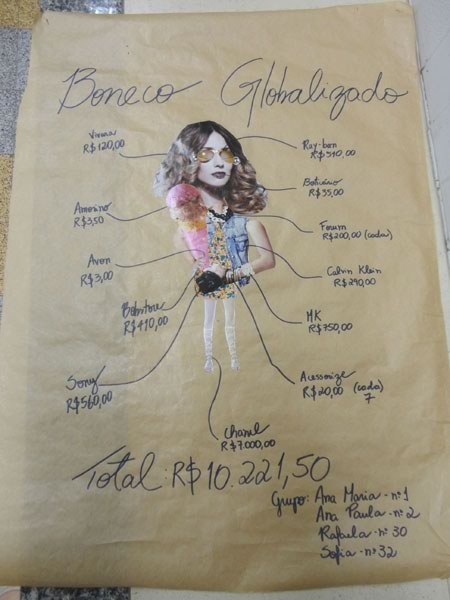 Boneco Globalizado
Vivara
R$120,00
Ray-ban
R$510,00
Boticário
R$35,00
Amorino
R$3,50
Forum
R$200,00 (cada)
Avon
R$3,00
Calvin Klein
R$290,00
R$410,00
MK
R$750,00
Sony
R$560,00
Acessorize
R$20,00 (cada)
7
Chanel
R$7.000,00
Total: R$ 10.221,50
Grupo: Ana Maria - nº 1
Ana Paula - nº 2
Rafaela - nº 30
Sofia - nº 32